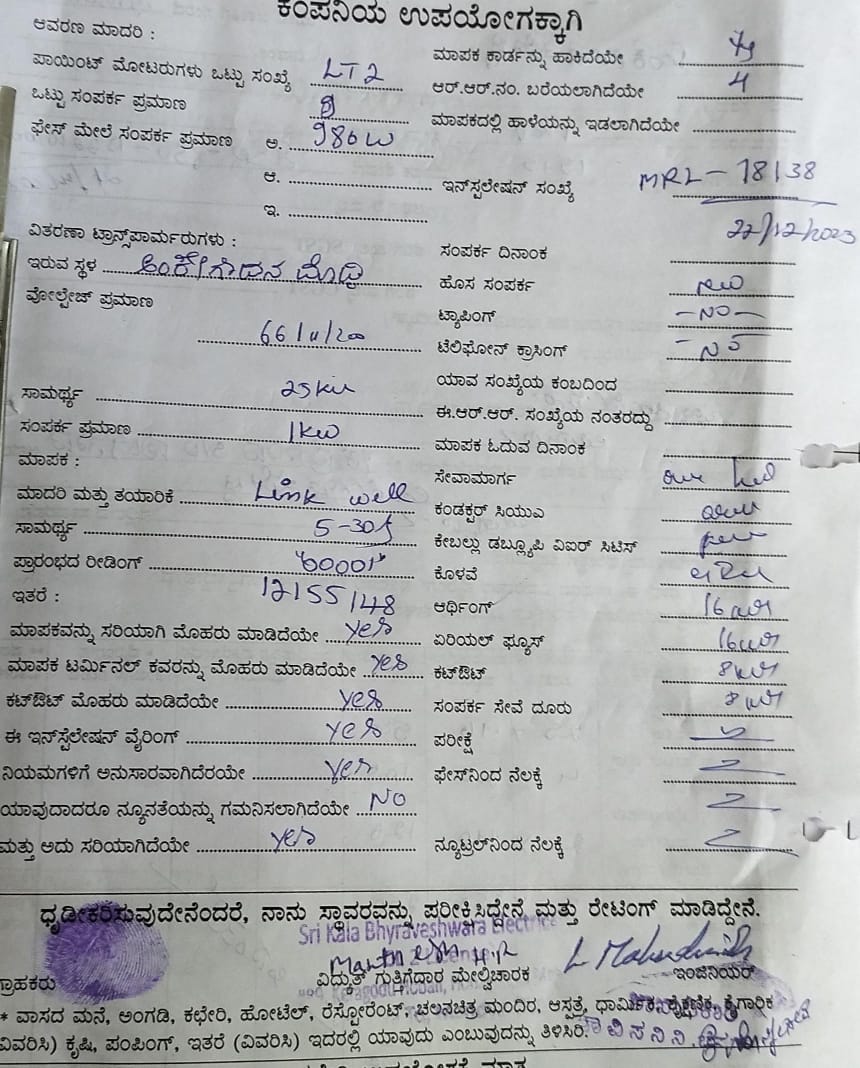 ಕಂಪನಿಯ ಉಪಯೋಗಕ್ಕಾಗಿ
ಆವರಣ ಮಾದರಿ :
ಮಾಪಕ ಕಾರ್ಡನ್ನು ಹಾಕಿದೆಯೇ
ಪಾಯಿಂಟ್ ಮೋಟರುಗಳು ಒಟ್ಟು ಸಂಖ್ಯೆ LT2
ಆರ್.ಆರ್.ನಂ. ಬರೆಯಲಾಗಿದೆಯೇ
ಒಟ್ಟು ಸಂಪರ್ಕ ಪ್ರಮಾಣ
ಮಾಪಕದಲ್ಲಿ ಹಾಳೆಯನ್ನು ಇಡಲಾಗಿದೆಯೇ
ಫೇಸ್ ಮೇಲೆ ಸಂಪರ್ಕ ಪ್ರಮಾಣ ಅ. 980W
ಆ.
ಇನ್‌ಸ್ಪಲೇಷನ್ ಸಂಖ್ಯೆ MRL - 18138
ಇ.
22/12/2023
ವಿತರಣಾ ಟ್ರಾನ್ಸ್‌ಪಾರ್ಮರುಗಳು :
ಸಂಪರ್ಕ ದಿನಾಂಕ
ಇರುವ ಸ್ಥಳ ಅಂಕೇಗೌಡನ ದೊಡ್ಡಿ
ಹೊಸ ಸಂಪರ್ಕ new
ವೋಲ್ಟೇಜ್ ಪ್ರಮಾಣ
ಟ್ಯಾಪಿಂಗ್ - NO -
66/11/200
ಟೆಲಿಫೋನ್ ಕ್ರಾಸಿಂಗ್ - NO
ಯಾವ ಸಂಖ್ಯೆಯ ಕಂಬದಿಂದ
ಸಾಮರ್ಥ್ಯ 25
ಈ.ಆರ್.ಆರ್. ಸಂಖ್ಯೆಯ ನಂತರದ್ದು
ಸಂಪರ್ಕ ಪ್ರಮಾಣ 1KW
ಮಾಪಕ ಓದುವ ದಿನಾಂಕ
ಮಾಪಕ :
ಸೇವಾಮಾರ್ಗ
ಮಾದರಿ ಮತ್ತು ತಯಾರಿಕೆ Link well
ಕಂಡಕ್ಟರ್ ಸಿಯುಎ
ಸಾಮರ್ಥ್ಯ 5-30A
ಕೇಬಲ್ಲು ಡಬ್ಲ್ಯೂಪಿ ವಿಐರ್ ಸಿಟಿಸ್
ಪ್ರಾರಂಭದ ರೀಡಿಂಗ್ "00001"
ಕೊಳವೆ
ಇತರೆ : 12155148
ಆರ್ಥಿಂಗ್
ಮಾಪಕವನ್ನು ಸರಿಯಾಗಿ ಮೊಹರು ಮಾಡಿದೆಯೇ yes
ಏರಿಯಲ್ ಫ್ಯೂಸ್
ಮಾಪಕ ಟರ್ಮಿನಲ್ ಕವರನ್ನು ಮೊಹರು ಮಾಡಿದೆಯೇ yes
ಕಟ್‌ಔಟ್
ಕಟ್‌ಔಟ್ ಮೊಹರು ಮಾಡಿದೆಯೇ yes
ಸಂಪರ್ಕ ಸೇವೆ ದೂರು
ಈ ಇನ್‌ಸ್ಟೆಲೇಷನ್ ವೈರಿಂಗ್ yes
ಪರೀಕ್ಷೆ
ನಿಯಮಗಳಿಗೆ ಅನುಸಾರವಾಗಿದೆರಯೇ yes
ಫೇಸ್‌ನಿಂದ ನೆಲಕ್ಕೆ
ಯಾವುದಾದರೂ ನ್ಯೂನತೆಯನ್ನು ಗಮನಿಸಲಾಗಿದೆಯೇ NO
ಮತ್ತು ಅದು ಸರಿಯಾಗಿದೆಯೇ yes
ನ್ಯೂಟ್ರಲ್‌ನಿಂದ ನೆಲಕ್ಕೆ
ಧೃಡೀಕರಿಸುವುದೇನೆಂದರೆ, ನಾನು ಸ್ಥಾವರವನ್ನು ಪರೀಕ್ಷಿಸಿದ್ದೇನೆ ಮತ್ತು ರೇಟಿಂಗ್ ಮಾಡಿದ್ದೇನೆ.
Sri Kala Bhyraveshwara Electric
ಗ್ರಾಹಕರು
ವಿದ್ಯುತ್ ಗುತ್ತಿಗೆದಾರ ಮೇಲ್ವಿಚಾರಕ
ಇಂಜಿನಿಯರ್
* ವಾಸದ ಮನೆ, ಅಂಗಡಿ, ಕಛೇರಿ, ಹೋಟೆಲ್, ರೆಸ್ಟೋರೆಂಟ್, ಚಲನಚಿತ್ರ ಮಂದಿರ, ಆಸ್ಪತ್ರೆ, ಧಾರ್ಮಿಕ, ಶೈಕ್ಷಣಿಕ, ಕೈಗಾರಿಕ
ವಿವರಿಸಿ) ಕೃಷಿ, ಪಂಪಿಂಗ್, ಇತರೆ (ವಿವರಿಸಿ) ಇದರಲ್ಲಿ ಯಾವುದು ಎಂಬುವುದನ್ನು ತಿಳಿಸಿರಿ.